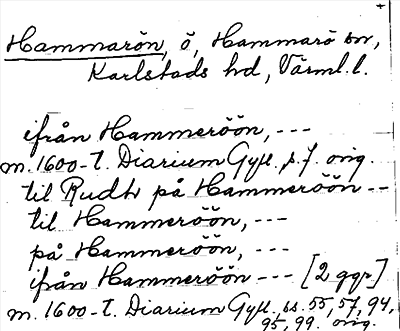 Hammarön, ö, Hammarö sn,
Karlstads hd, Värml. l.
ifrån Hammeröön, ---
m. 1600-t. Diarium Gyll. s. 7. orig.
til Rudh på Hammeröön --
til Hammeröön, ---
på Hammeröön, ---
ifrån Hammeröön --- [2 ggr]
m. 1600-t. Diarium Gyll. ss. 55, 57, 94,
95, 99. orig.